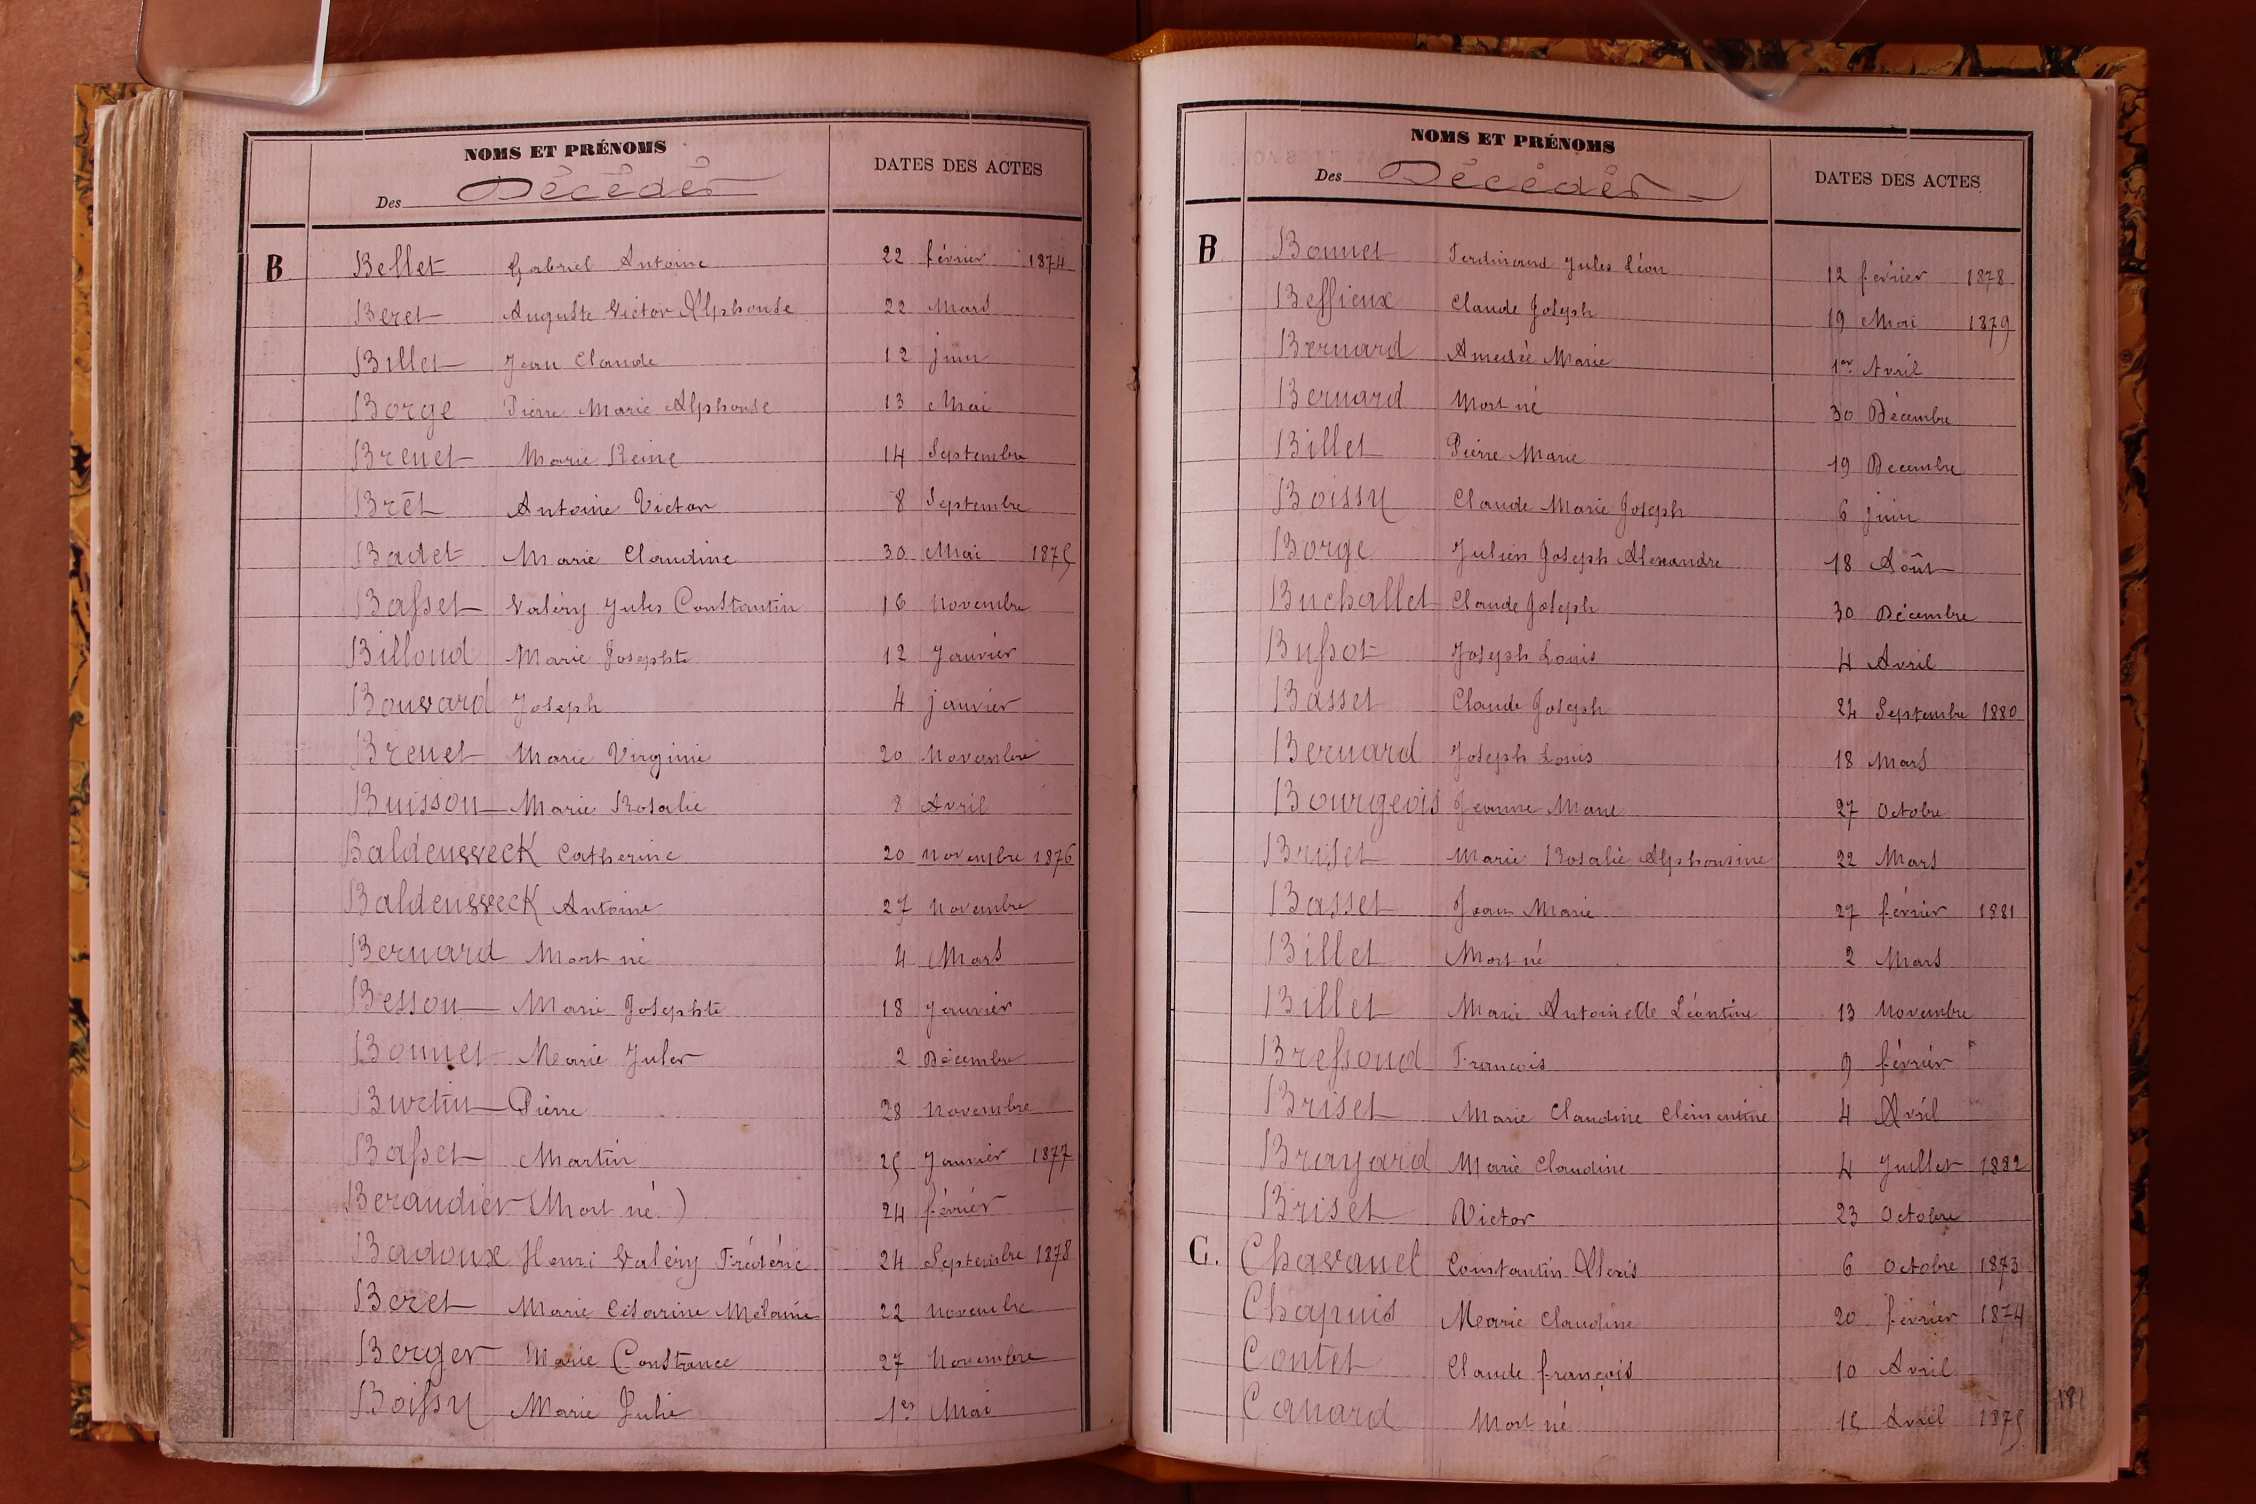 NOMS ET PRÉNOMS
DATES DES ACTES
Des Décédés
B Bellet Gabriel Antoine 22 février 1874
Beret Auguste Victor Alphonse 22 Mars
Billet Jean Claude 12 juin
Borge Pierre Marie Alphonse 13 Mai
Brenet Marie Reine 14 Septembre
Bret Antoine Victor 8 Septembre
Badet Marie Claudine 30 Mai 1875
Basset Valéry Jules Constantin 16 Novembre
Billoud Marie Josephte 12 Janvier
Bouvard Joseph 4 janvier
Brenet Marie Virginie 20 Novembre
Buisson Marie Rosalie 8 Avril
Baldensveck Catherine 20 Novembre 1876
Baldensveck Antoine 27 Novembre
Bernard Mort né 4 Mars
Besson Marie Josephte 18 Janvier
Bonnet Marie Jules 2 Décembre
Burtin Pierre 28 Novembre
Basset Martin 25 Janvier 1877
Beraudier (Mort né) 24 février
Badoux Henri Valéry Frédéric 24 Septembre 1878
Beret Marie Césarine Mélanie 22 Novembre
Berger Marie Constance 27 Novembre
Boissy Marie Julie 1er Mai
NOMS ET PRÉNOMS
DATES DES ACTES
Des Décédés
B Bonnet Ferdinand Jules Léon 12 février 1878
Beffieux Claude Joseph 19 Mai 1879
Bernard Amedée Marie 1er Avril
Bernard Mort né 30 Décembre
Billet Pierre Marie 19 Decembre
Boissy Claude Marie Joseph 6 juin
Borge Julien Joseph Alexandre 18 Août
Buchallet Claude Joseph 30 Décembre
Bussot Joseph Louis 4 Avril
Basset Claude Joseph 24 Septembre 1880
Bernard Joseph Louis 18 Mars
Bourgeois Jeanne Marie 27 Octobre
Briset Marie Rosalie Alphonsine 22 Mars
Basset Jean Marie 27 février 1881
Billet Mort né 2 Mars
Billet Marie Antoinette Léontine 13 Novembre
Bressoud François 9 février
Briset Marie Claudine Clémentine 4 Avril
Brayard Marie Claudine 4 Juillet 1882
Briset Victor 23 Octobre
C. Chavanet Constantin Alexis 6 Octobre 1873
Chapuis Marie Claudine 20 février 1874
Contet Claude françois 10 Avril
Canard Mort né 15 Avril 1875
181